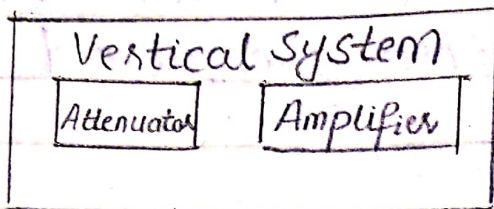 Vertical System
Attenuator Amplifier